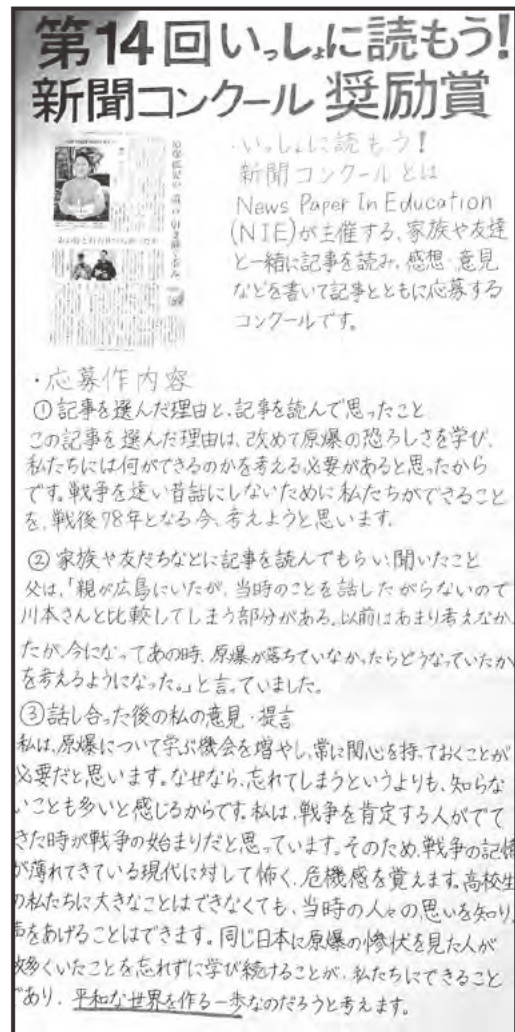 第14回いっしょに読もう!
新聞コンクール 奨励賞
・いっしょに読もう!
新聞コンクールとは
News Paper In Education
(NIE)が主催する、家族や友達
と一緒に記事を読み、感想・意見
などを書いて記事とともに応募する
コンクールです。
・応募作内容
①記事を選んだ理由と、記事を読んで思ったこと
この記事を選んだ理由は、改めて原爆の恐ろしさを学び、
私たちには何ができるのかを考える必要があると思ったから
です。戦争を遠い昔話にしないために私たちができること
を、戦後78年となる今、考えようと思います。
②家族や友だちなどに記事を読んでもらい、聞いたこと
父は、「親が広島にいたが、当時のことを話したがらないので
川本さんと比較してしまう部分がある。以前はあまり考えなか
たが、今になってあの時、原爆が落ちていなかったらどうなっていたか
を考えるようになった。」と言っていました。
③話し合った後の私の意見・提言
私は、原爆について学ぶ機会を増やし、常に関心を持っておくことが
必要だと思います。なぜなら、忘れてしまうというよりも、知らな
いことも多いと感じるからです。私は、戦争を肯定する人がでて
きた時が戦争の始まりだと思っています。そのため、戦争の記憶
が薄れてきている現代に対して怖く、危機感を覚えます。高校生
の私たちに大きなことはできなくても、当時の人々の思いを知り、
声をあげることはできます。同じ日本に原爆の惨状を見た人が
数多くいたことを忘れずに学び続けることが、私たちにできること
であり、平和な世界を作る一歩なのだろうと考えます。